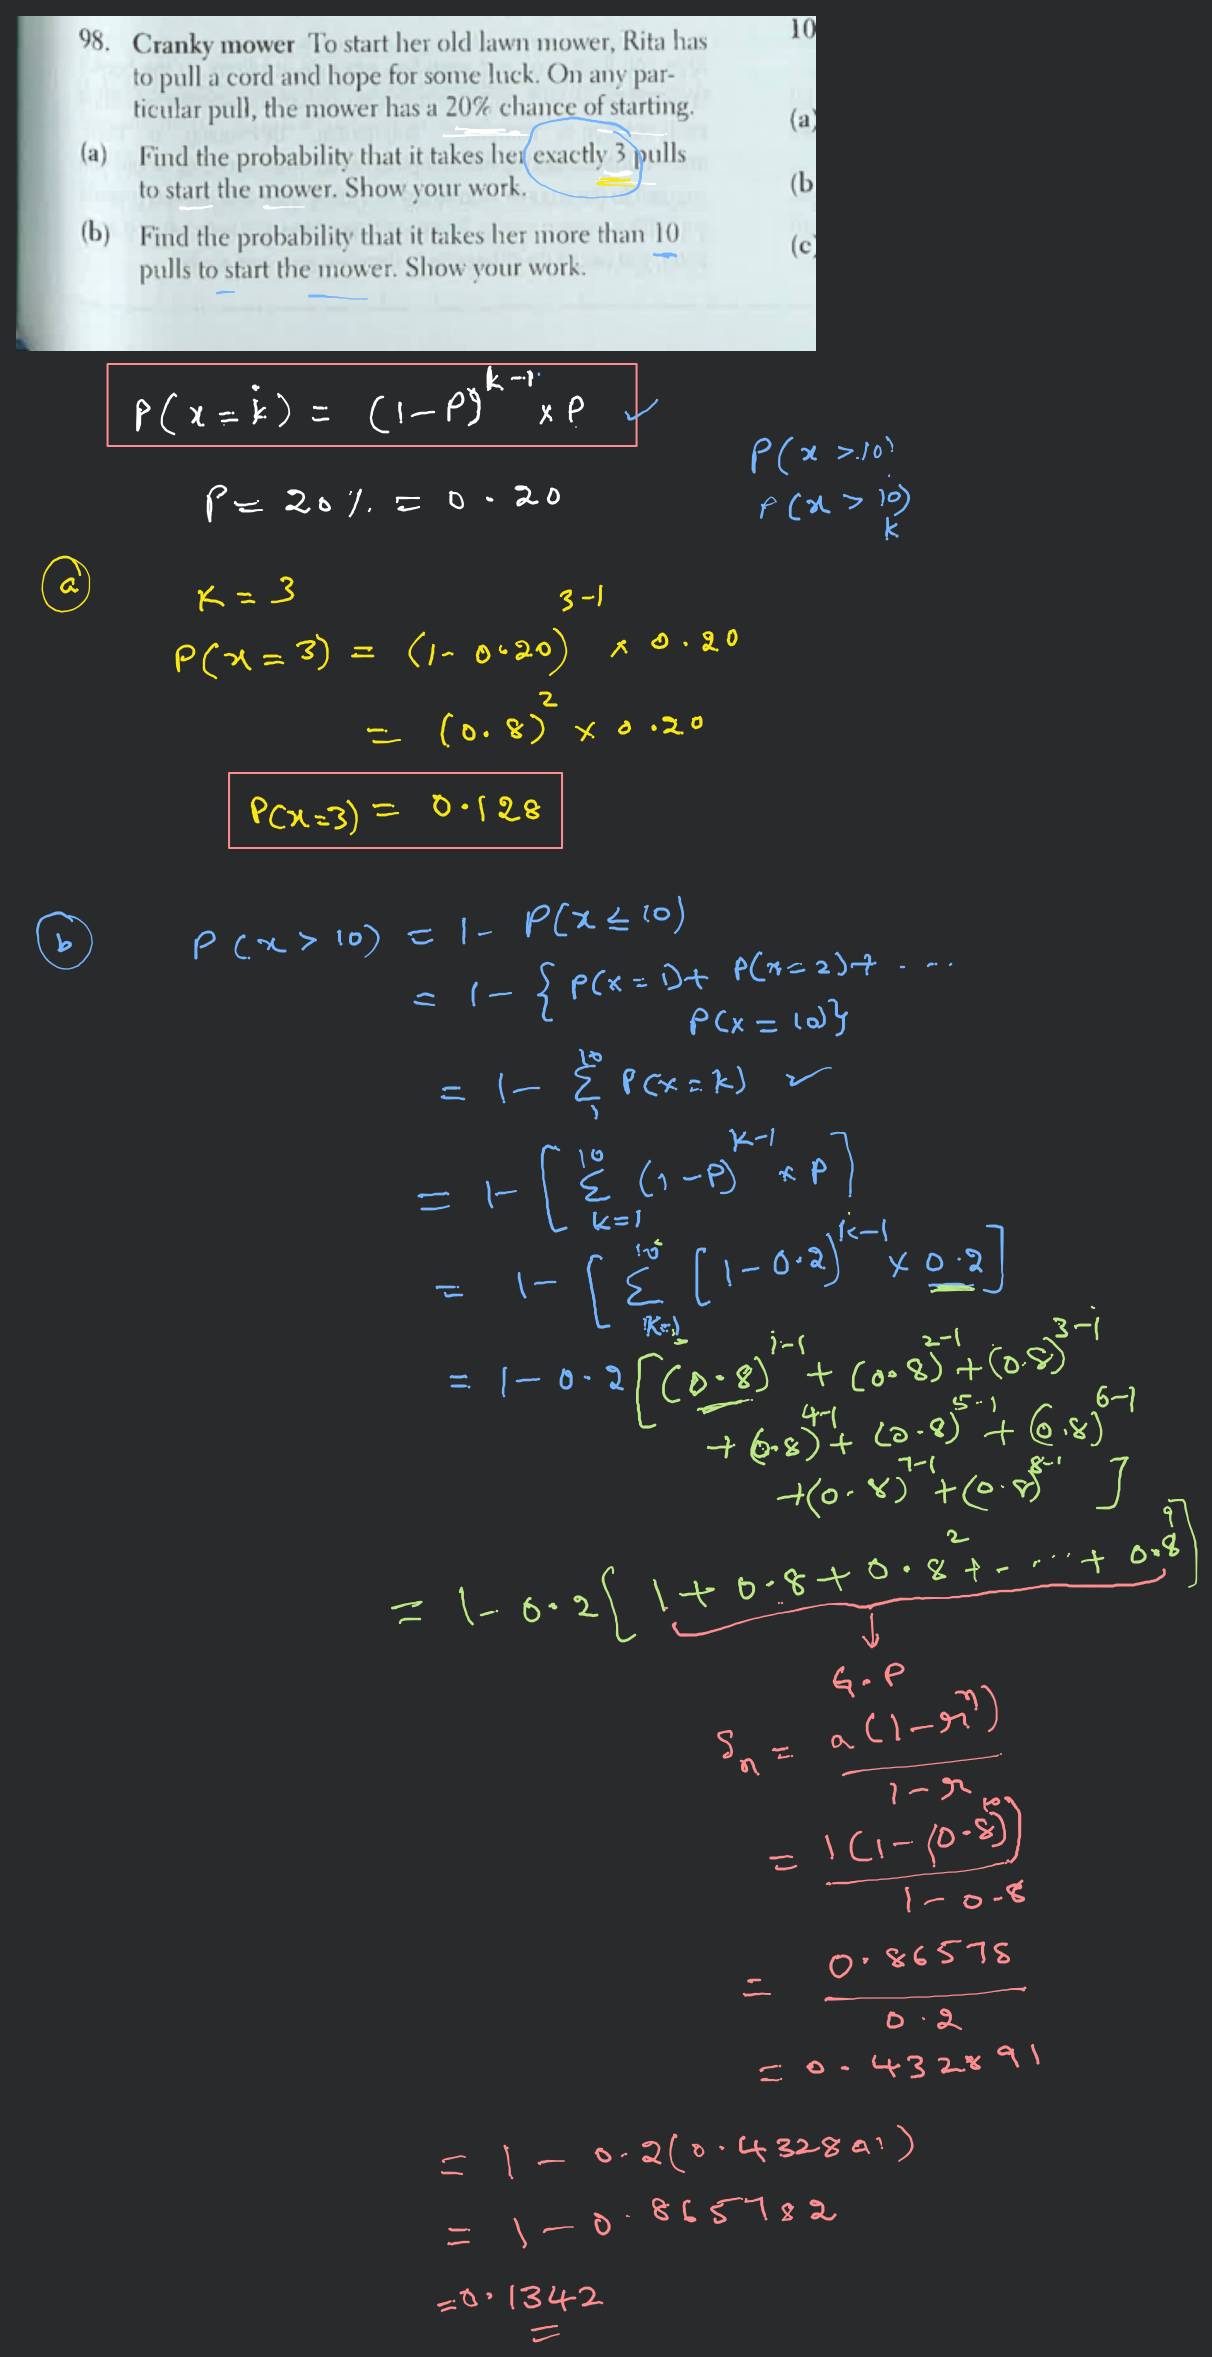 98. Cranky mower To start her old lawn mower, Rita has
to pull a cord and hope for some luck. On any par-
ticular pull, the mower has a 20% chance of starting.
(a) Find the probability that it takes her exactly 3 pulls
to start the mower. Show your work.
(b) Find the probability that it takes her more than 10
pulls to start the mower. Show your work.
10
(a)
(b
(c)
P(x=k) = (1-P)^{k-1} × P ✓
P = 20% = 0.20
P(x >.10)
P(x > 10)
k
a
K = 3
P(x=3) = (1-0.20)^{3-1} × 0.20
= (0.8)^2 × 0.20
P(x=3) = 0.128
b
P(x > 10) = 1- P(x ≤ 10)
= 1- { P(x=1)+ P(x=2)+ ....
P(x=10)}
= 1- Σ_{1}^{10} P(x=k) ✓
= 1- [ Σ_{k=1}^{10} (1-P)^{k-1} × P ]
= 1- [ Σ_{k=1}^{10} [1-0.2)^{k-1} × 0.2 ]
= 1-0.2 [ (0.8)^{1-1} + (0.8)^{2-1} + (0.8)^{3-1}
+ (0.8)^{4-1} + (0.8)^{5-1} + (0.8)^{6-1}
+ (0.8)^{7-1} + (0.8)^{8-1} ]
= 1-0.2 [ 1+0.8+0.8^2+-....+ 0.8^9 ]
G.P
S_n = a(1-r^n)
1-r
= 1(1-(0.8)^{10})
1-0.8
= 0.86578
0.2
= 0.432891
= 1 - 0.2(0.432891)
= 1-0.865782
=0.1342